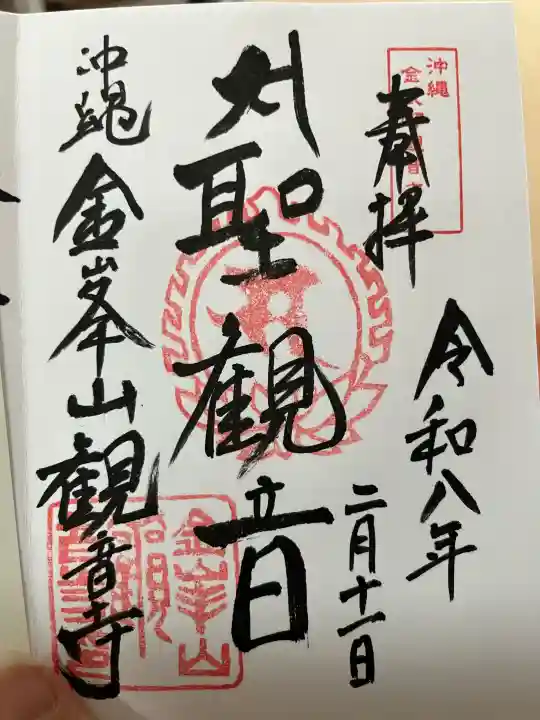 奉拝
令和八年
二月十一日
聖観音
沖縄 金峯山観音寺
沖縄
金峯山